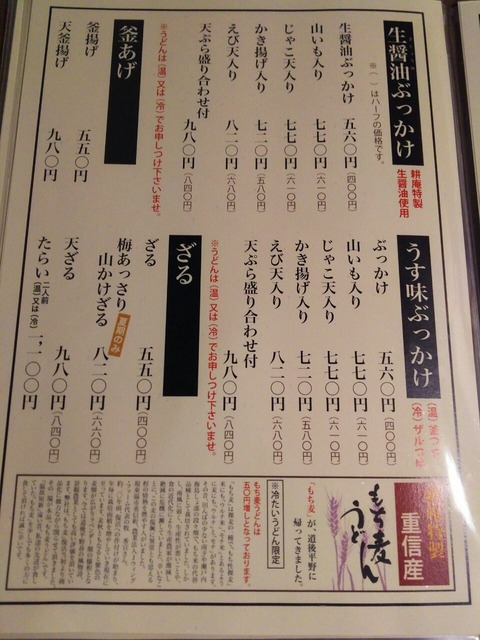 生醤油ぶっかけ
耕庵特製
生醤油使用
※( )はハーフの価格です。
生醤油ぶっかけ 五六〇円(四〇〇円)
山いも入り 七七〇円(六一〇円)
じゃこ天入り 七七〇円(六一〇円)
かき揚げ入り 七二〇円(五八〇円)
えび天入り 八二〇円(六八〇円)
天ぷら盛り合わせ付 九八〇円(八四〇円)
※うどんは(温)又は(冷)でお申しつけ下さいませ。
釜あげ
釜揚げ 五五〇円
天釜揚げ 九八〇円
うす味ぶっかけ
ぶっかけ 五六〇円(四〇〇円)
山いも入り 七七〇円(六一〇円)
じゃこ天入り 七七〇円(六一〇円)
かき揚げ入り 七二〇円(五八〇円)
えび天入り 八二〇円(六八〇円)
天ぷら盛り合わせ付 九八〇円(八四〇円)
※うどんは(温)又は(冷)でお申しつけ下さいませ。
ざる
ざる 五五〇円(四〇〇円)
梅あっさり
山かけざる 夏期のみ 八二〇円(六六〇円)
天ざる 九八〇円(八四〇円)
たらい 二人前 (温)又は(冷) 一,一〇〇円
重信産
もち麦うどん
「もち麦」が、道後平野に
帰ってきました。
※冷たいうどん限定
もち麦うどんは
五〇円増しとなっております。